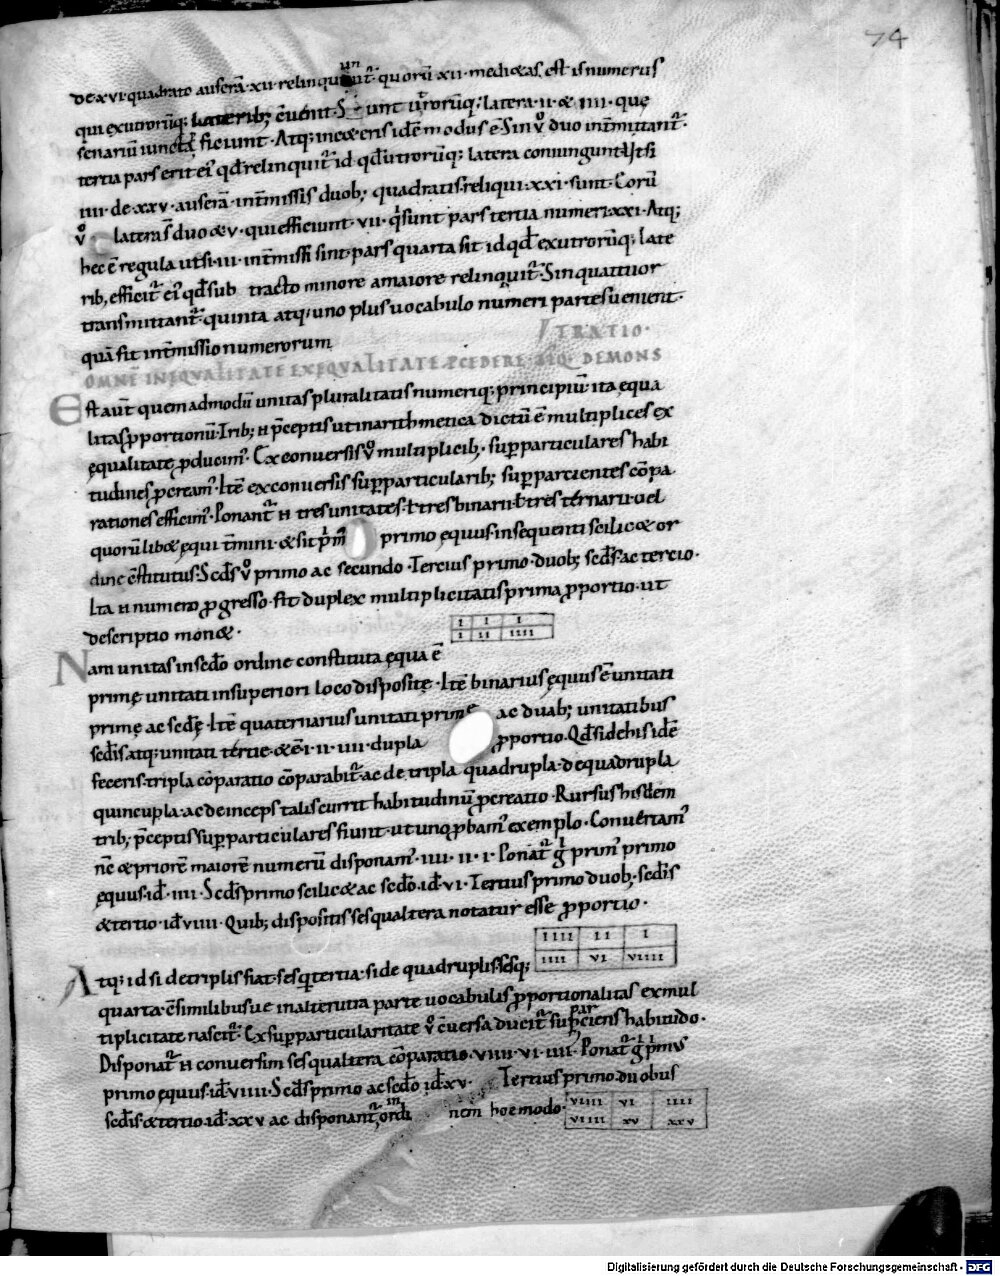 74
de xvi quadrato auferā xii relinquunt̄ quorū xii medi&as est is numerus
qui ex utrorūq; laterib; ēuenit Sunt u̅rorūq; latera ii & iiii que
senariū iuncta ficiunt Atq; in ea eris idē modus ē Sin v̊ duo int̄mittant̄
tertia pars erit ei' qđ relinquit̄ id qđ utrorūq; latera coniungunt Vt si
iiii de xxv auferā int̄missis duob; quadratis reliqui xxi sunt Eorū
v̊ latera s̄ duo & v qui efficiunt vii q̄ sunt pars tertia numeri xxi Atq;
hec ē regula ut si iii int̄missi sint pars quarta sit id qđ ex utrorūq; late
rib; efficit̄ ei' qđ sub tracto minore a maiore relinquit̄ Sin quattuor
transmittant̄ quinta atq; uno plus uocabulo numeri partes uenient
quā fit int̄missio numerorum
TRATIO
OMNĒ INĘQVALITATĒ EX ĘQVALITATE PCEDERE EIQ; DEMONS
Est aut̄ quemadmodū unitas pluralitatis numeriq; principiū ita equa
litas pportionū Trib; n̄ pceptis ut in arithmetica dictū ē multiplices ex
ęqualitate pducim' Ex conuersis v̊ multiplicib; supparticulares habi
tudines pcream' Itē ex conuersis supparticularib; suppartientes cōpa
rationes efficim' Ponant̄ n̄ tres unitates ł tres binarii ł tres ternarii uel
quorūlib& ęqui t̄mini & sit pm' primo ęquus in sequenti scilic& or
dine cstitutus Scđs v̊ primo ac secundo Tercius primo duob; scđis ac tercio
Ita n̄ numero pgresso fit duplex multiplicitatis prima pportio ut
descriptio mon&
I I I
I II IIII
Nam unitas in scđo ordine constituta ęqua ē
primę unitati in superiori loco disposite Itē binarius ęquus ē unitati
primę ac scđę Itē quaternarius unitati primę ac duab; unitatibus
scđis atq; unitati tertie & ē i ii iiii dupla pportio Qđ si de his idē
feceris tripla cōparatio cōparabit̄ ac de tripla quadrupla de quadrupla
quincupla ac deinceps talis currit habitudinū pcreatio Rursus hisdem
trib; pceptis supparticulares fiunt ut uno pbam' exemplo Conuertam'
nc̄ & priorē maiorē numerū disponam' iiii ii i Ponat̄ g̊ prim' primo
ęquus id̄ iiii Scđs primo scilic& ac scđo id̄ vi Tertius primo duob; scđis
& tertio id̄ viiii Quib; dispositis sesqualtera notatur esse pportio
IIII II I
IIII VI VIIII
Atq; id si de triplis fiat sesqtertia si de quadruplis sesq;
quarta ē similibus ue in alterutra parte uocabulis pportionalitas ex mul
tiplicitate nascit̄ Ex supparticularitate v̊ cuersa ducit̄ suppar ciens habitudo
Disponat̄ n̄ conuersim sesqualtera cōparatio viiii vi iiii Ponat̄ g̊ pmus
primo equus id̄ viiii Scđs primo ac scđo id̄ xv Tertius primo duobus
scđis & tertio id̄ xxv ac disponant̄ in ordi nem hoc modo
VIIII VI IIII
VIIII XV XXV
Digitalisierung gefördert durch die Deutsche Forschungsgemeinschaft - DFG